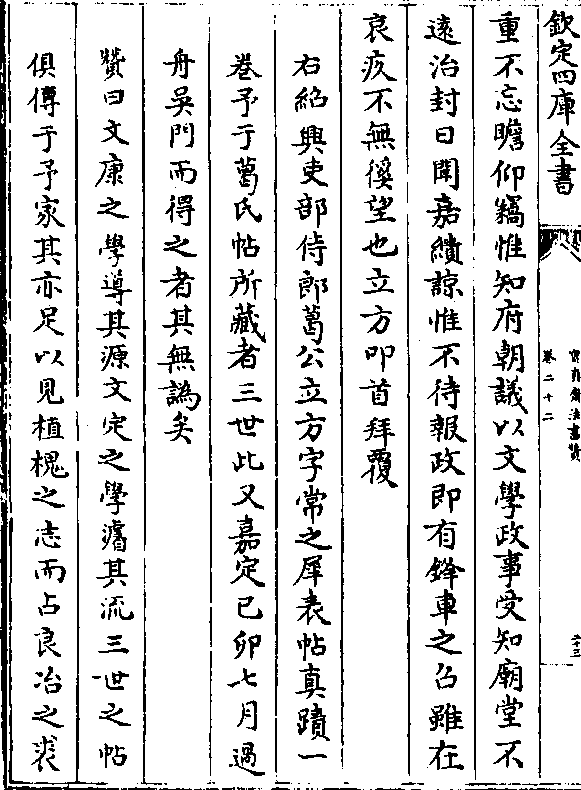 欽定四庫全書
卷二十二
重不忘瞻仰竊惟知府朝議以文學政事受知廟堂不
遠治封日聞嘉績諒惟不待報政即有鋒車之召雖在
哀疚不無徯望也立方叩首拜覆
右紹興吏部侍郎葛公立方字常之犀表帖真蹟一
卷予于葛氏帖所藏者三世此又嘉定己卯七月過
舟吳門而得之者其無譌矣
贊曰文康之學導其源文定之學濬其流三世之帖
俱傳于予家其亦足以見植槐之志而占良冶之裘